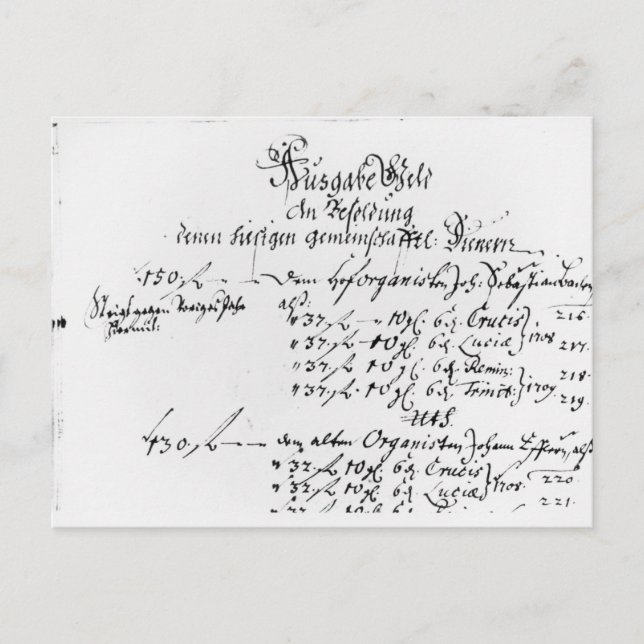 Ausgabe Geld
An Besoldung
denen hiesigen gemeinschafftl: Dienern
150. fl — — dem Hoforganisten Joh: Sebastian Bachen
Steigt gegen voriges Jahr
alß:
" 37. fl — 10 gl. 6 d. Crucis 216.
" 37. fl — 10 gl. 6 d. Luciæ } 1708 217.
" 37. fl. 10 gl. 6 d. Remin: 218.
" 37. fl. 10 gl. 6 d. Trinit: } 1709. 219.
130. fl — — dem alten Organisten Johann Efflern, alß
" 32. fl 10 gl. 6 d. Crucis 220.
" 32. fl. 10 gl. 6 d. Luciæ } 1708 221.